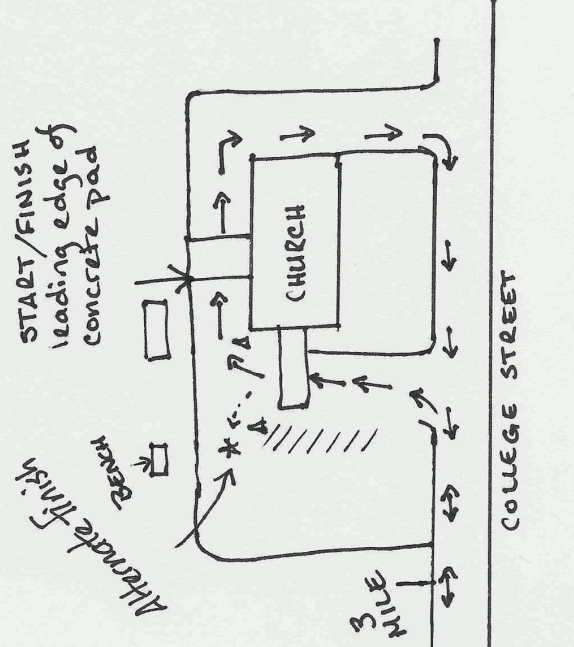 START/FINISH
leading edge of
concrete pad
CHURCH
BENCH
Alternate finish
3
MILE
COLLEGE STREET